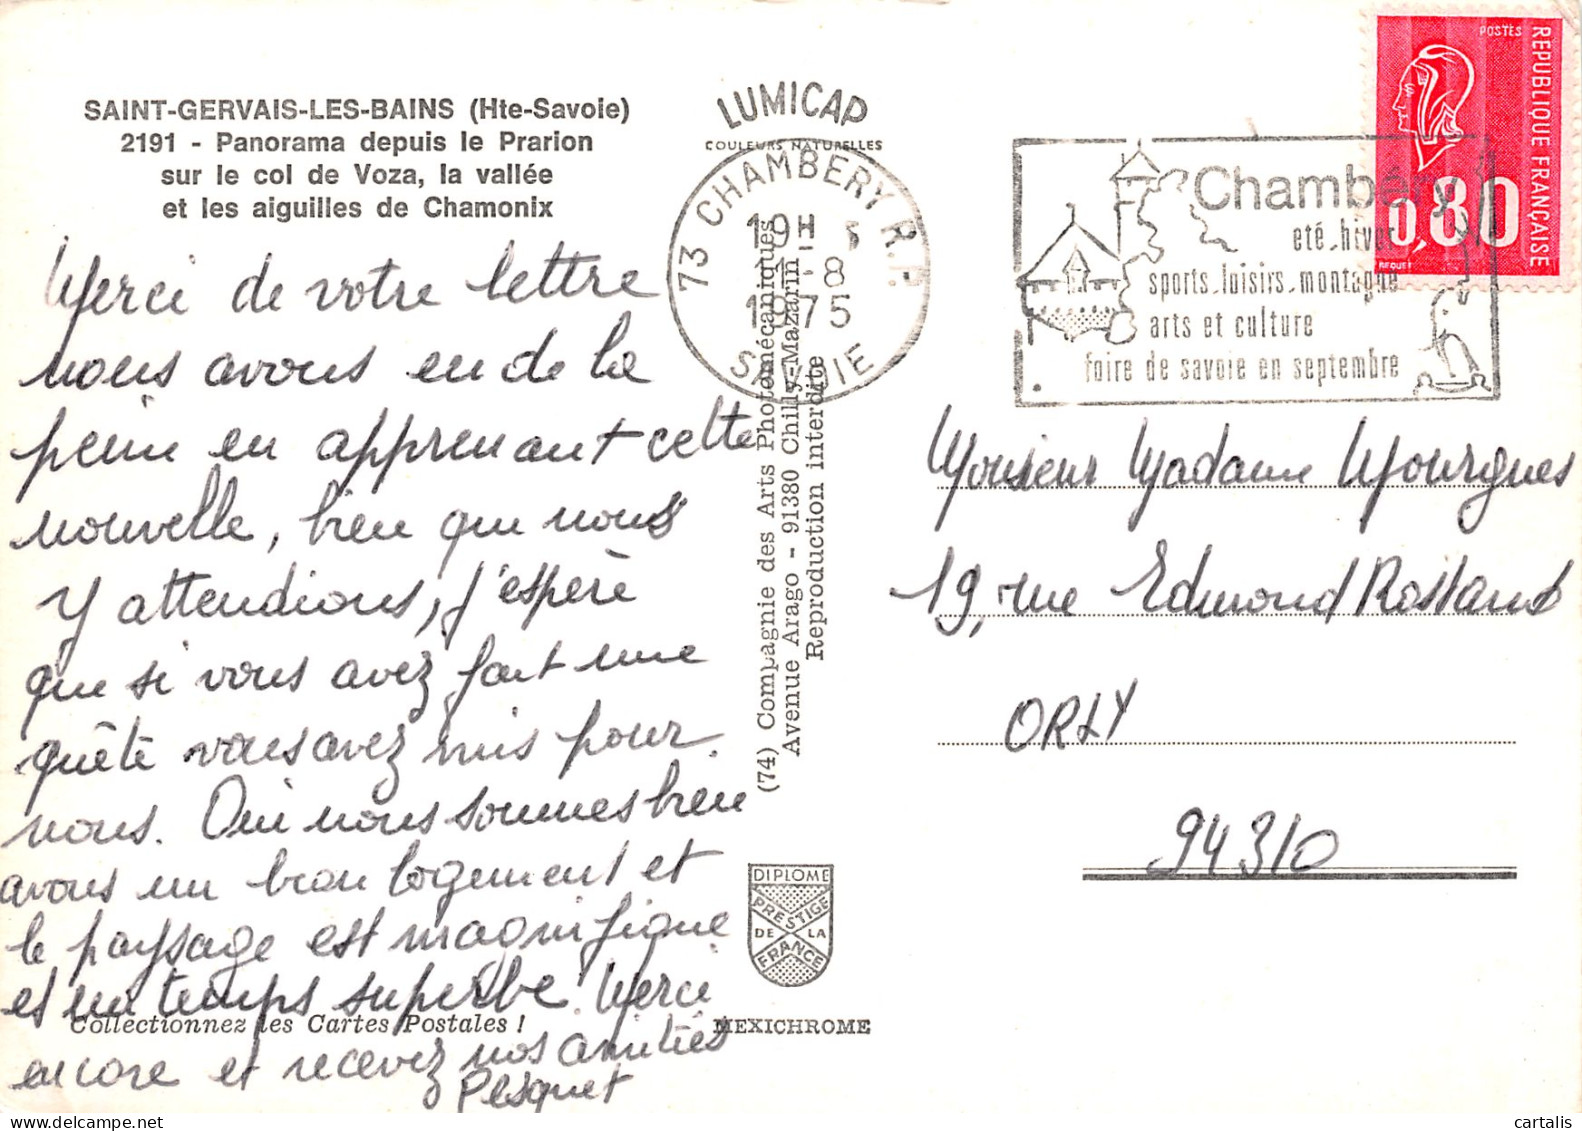 SAINT-GERVAIS-LES-BAINS (Hte-Savoie)
2191 - Panorama depuis le Prarion
sur le col de Voza, la vallée
et les aiguilles de Chamonix
Merci de votre lettre
nous avons eu de la
peine en apprenant cette
nouvelle, bien que nous
y attendions, j'espère
que si vous avez fait une
quête vous avez mis pour
nous. Oui nous sommes bien
avons un bon logement et
le paysage est magnifique
et un temps superbe. Merci
encore et recevez nos amitiés
Pesquet
Collectionnez les Cartes Postales !
LUMICAP
COULEURS NATURELLES
73 CHAMBERY R.P.
19H
1-8
1975
SAVOIE
(74) Compagnie des Arts Photomécaniques
Avenue Arago - 91380 Chilly-Mazarin
Reproduction interdite
DIPLOME
PRESTIGE
DE LA
FRANCE
MEXICHROME
Chambéry
eté-hiver
sports-loisirs-montagne
arts et culture
foire de savoie en septembre
POSTES
REPUBLIQUE FRANÇAISE
0,80
BEQUET
Monsieur Madame Mourgues
19, rue Edmond Rostand
ORLY
94310
cartalis